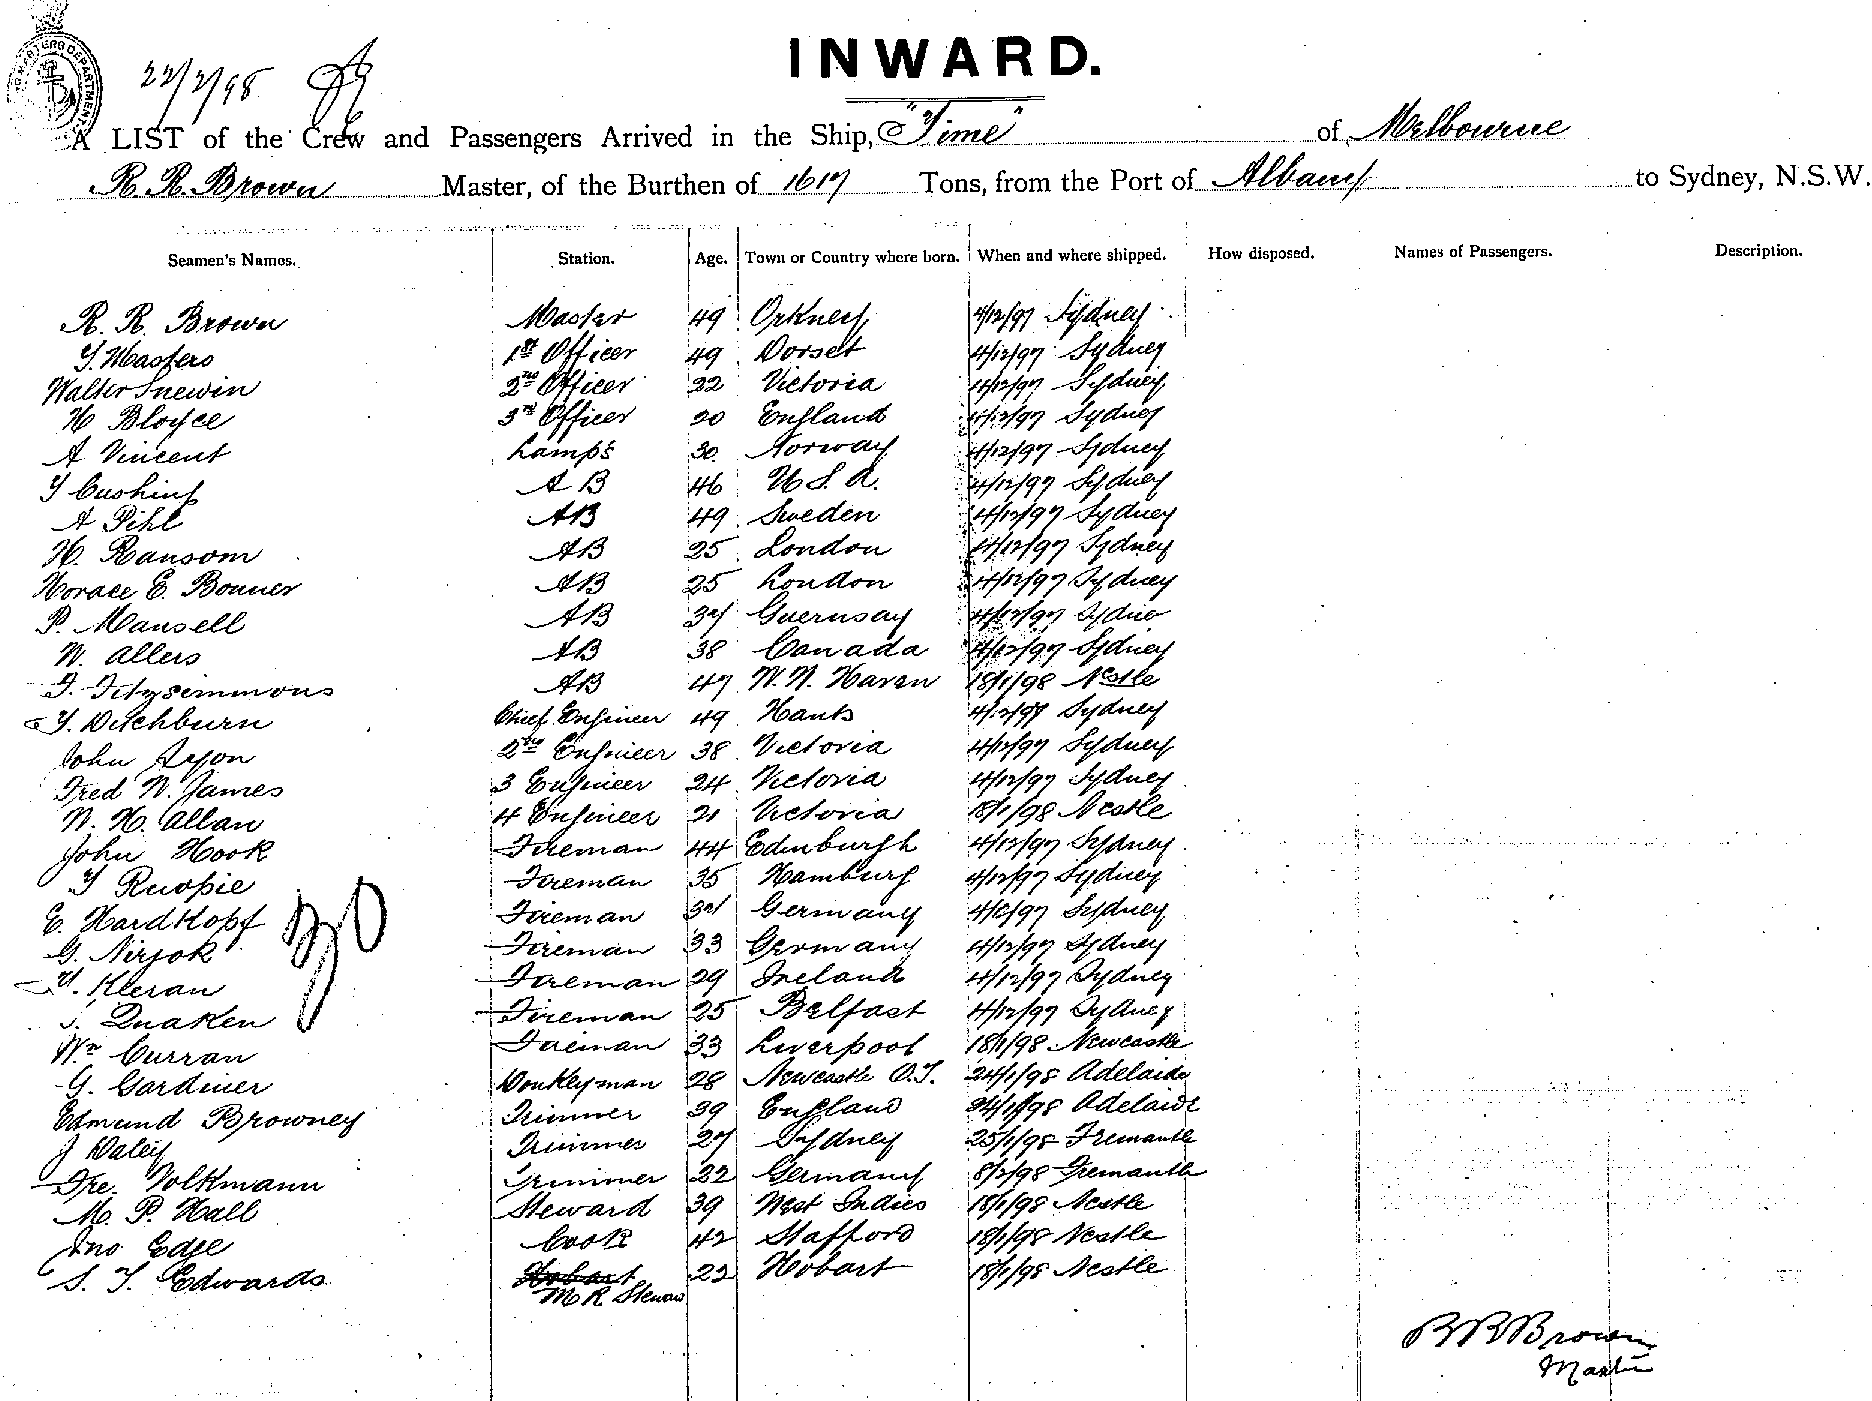 INWARD.
22/2/98
A LIST of the Crew and Passengers Arrived in the Ship, "Time" of Melbourne
R. R. Brown Master, of the Burthen of 1617 Tons, from the Port of Albany to Sydney, N.S.W.
Seamen's Names. Station. Age. Town or Country where born. When and where shipped. How disposed. Names of Passengers. Description.
R. R. Brown Master 49 Orkney 4/12/97 Sydney
T. Masters 1st Officer 49 Dorset 4/12/97 Sydney
Walter Snewin 2nd Officer 22 Victoria 4/12/97 Sydney
H Bloyce 3rd Officer 20 England 4/12/97 Sydney
A Vincent Lamps 30 Norway 4/12/97 Sydney
T Cushing A B 46 U S. A. 4/12/97 Sydney
A Pihl AB 49 Sweden 4/12/97 Sydney
H. Ransom AB 25 London 4/12/97 Sydney
Horace E. Bonner AB 25 London 4/12/97 Sydney
P. Mansell AB 37 Guernsay 4/12/97
W. Allers AB 38 Canada 4/12/97 Sydney
F. Fitzsimmons AB 47 W. N. Haven 18/1/98 Ncstle
T. Ditchburn Chief Engineer 49 Hants 4/12/97 Sydney
John 2nd Engineer 38 Victoria 4/12/97 Sydney
Fred W. James 3 Engineer 24 Victoria 4/12/97 Sydney
W. H. Allan 4 Engineer 21 Victoria 18/1/98 Ncstle
John Hook Fireman 44 Edinburgh 4/12/97 Sydney
T Fireman 35 Hamburg 4/12/97 Sydney
E. Hardkopf Fireman 37 Germany Sydney
G. Fireman 33 Germany 4/12/97 Sydney
T. Kieran Fireman 29 Ireland 4/12/97 Sydney
30
Quaken Fireman 25 Belfast 4/12/97 Sydney
Wm Curran Fireman 33 Liverpool 18/1/98 Newcastle
G. Gardiner Donkeyman 28 Newcastle O.T. 24/1/98 Adelaide
Edmund Browney Trimmer 39 England 24/1/98 Adelaide
J Daley Trimmer 27 Sydney 25/1/98 Fremantle
Fre. Volkmann Trimmer 22 Germany 8/2/98 Fremantle
M. P. Hall Steward 39 West Indies 18/1/98 Ncstle
Jno Edge Cook 42 Stafford 18/1/98 Ncstle
S. T. Edwards Hobart 22 Hobart 18/1/98 Ncstle
M R Steward
R R Brown
Master